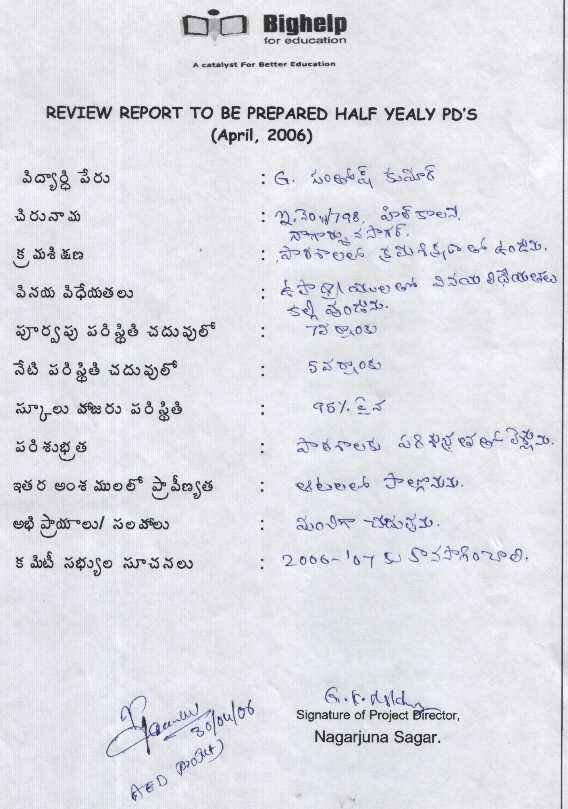 Bighelp
for education
A catalyst For Better Education
REVIEW REPORT TO BE PREPARED HALF YEALY PD'S
(April, 2006)
విద్యార్ధి పేరు : G. సంతోష్ కుమార్
చిరునామ : 798, హిల్ కాలనీ,
నాగార్జున సాగర్.
క్రమశిక్షణ : పాఠశాలలో క్రమశిక్షణతో ఉండును.
వినయ విధేయతలు : ఉపాధ్యాయులతో వినయ విధేయతలు
కల్గి వుండును.
పూర్వపు పరిస్థితి చదువులో : 7వ ర్యాంకు
నేటి పరిస్థితి చదువులో : 5వ ర్యాంకు
స్కూలు హాజరు పరిస్థితి : 95% పైన
పరిశుభ్రత : పాఠశాలకు పరిశుభ్రతతో వెళ్లును.
ఇతర అంశములలో ప్రావీణ్యత : ఆటలలో పాల్గొనును.
అభిప్రాయాలు/ సలహాలు : మంచిగా చదువును.
కమిటీ సభ్యుల సూచనలు : 2006-'07 కు కొనసాగించాలి.
30/04/06
AED
G.K. Reddy
Signature of Project Director,
Nagarjuna Sagar.